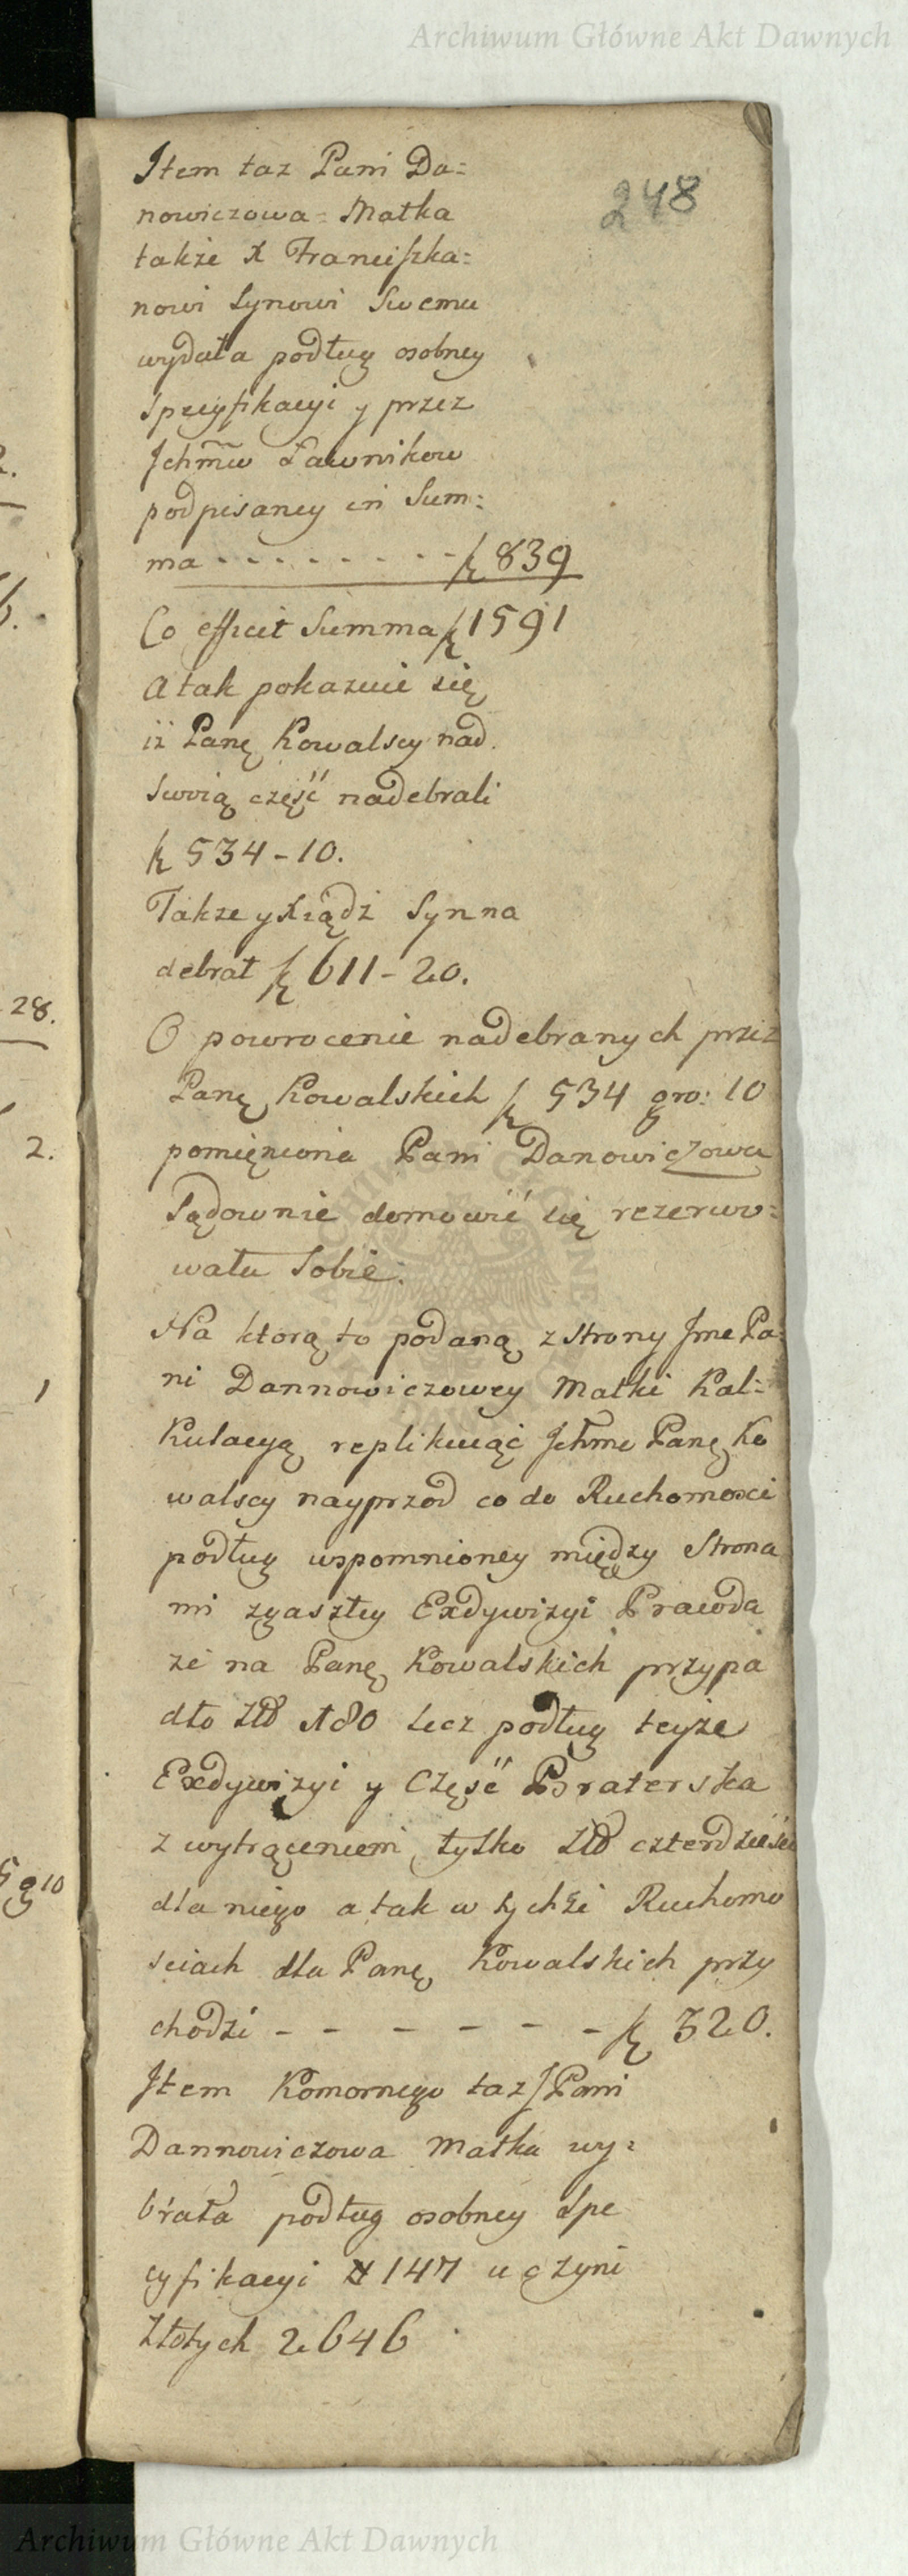 Archiwum Główne Akt Dawnych
248
Item taz Pani Da=
nowiczowa = Matka
także X Franciszka=
nowi Synowi Swemu
wydała podług osobney
Specyfikacyi y przez
Ichmw Ławnikow
podpisaney in Sum=
ma - - - - - - - - 839
Co efficit Summa 1591
a tak pokazuie się
iż Panę Kowalscy nad
Swoią część nadebrali
534 - 10.
Takze y Xiądz Syn na
debrał 611 - 20.
O powrocenie nadebranych przez
Panę Kowalskich 534 gro: 10
pomięniona Pani Danowiczowa
Sądownie domowić się rezerwo=
wała Sobie.
Na ktorą to podaną z strony Jme Pa=
ni Dannowiczowey Matki Kal=
kulacyą replikuiąc Ichme Panę Ko
walscy nayprzod co do Ruchomosci
podług wspomnioney między Strona
mi zgaszłey Exdywizyi Prawda
ze na Panę Kowalskich przypa
dło Złł 180 Lecz podług teyże
Exdywizyi y Część Braterska
z wytrąceniem tylko Złł czterdzieści
dla niego a tak w tychże Ruchomo
sciach dla Panę Kowalskich przy
chodzi - - - - - - - 320.
Item Komornego taz J Pani
Dannowiczowa Matka wy=
brała podług osobney Spe
cyfikacyi # 147 uczyni
Złotych 2646
2.
6.
28.
2.
1
5 g 10
Archiwum Główne Akt Dawnych